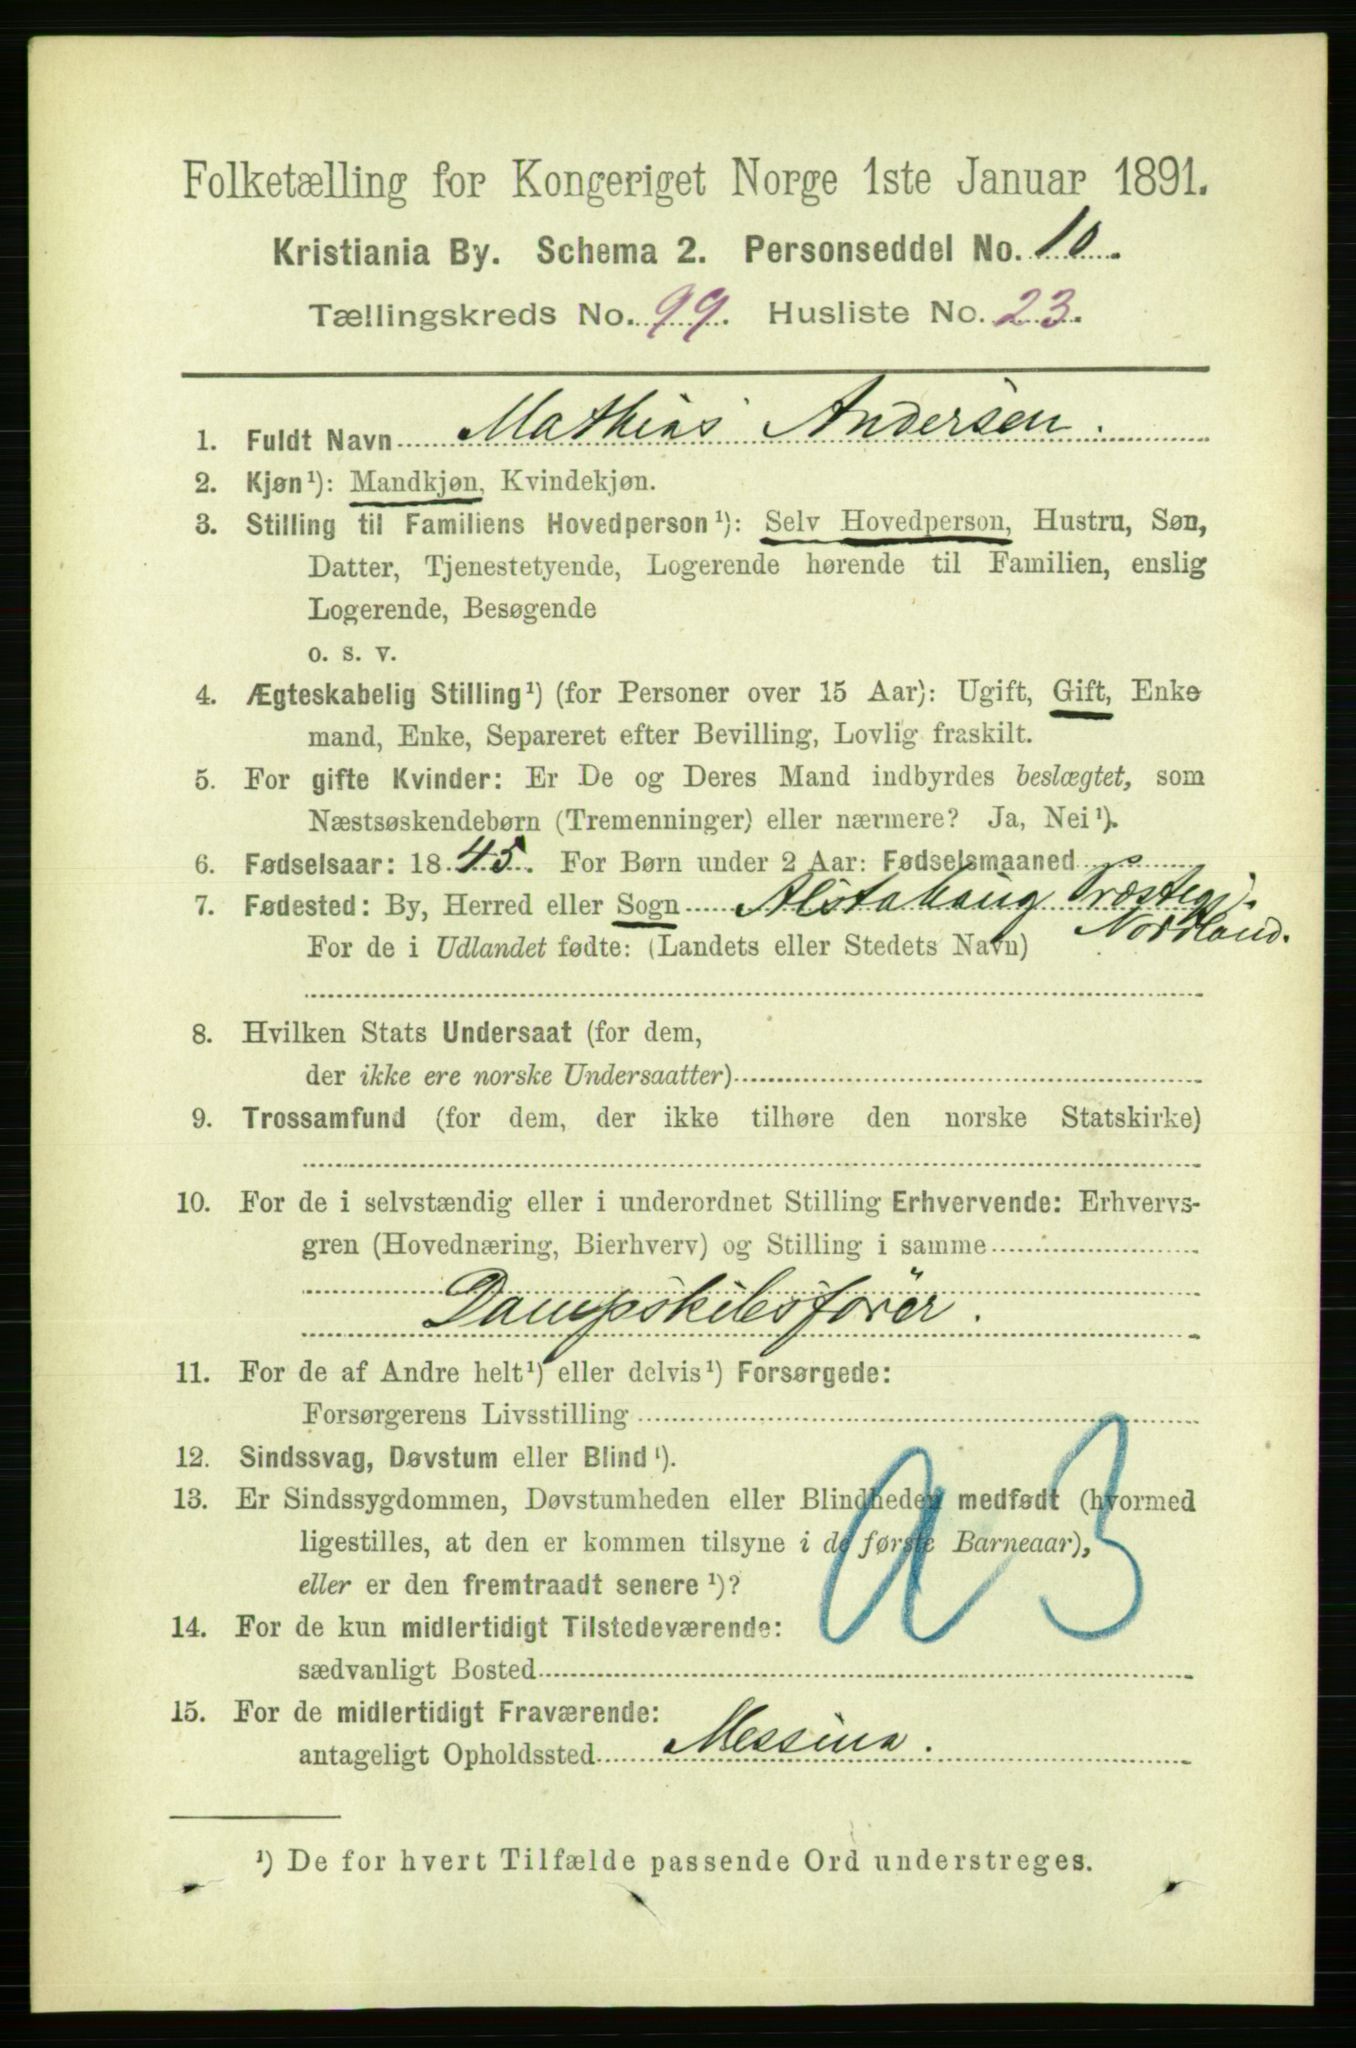 Folketælling for Kongeriget Norge 1ste Januar 1891.
Kristiania By. Schema 2. Personseddel No. 10.
Tællingskreds No. 99. Husliste No. 23.
1. Fuldt Navn Mathias Andersen.
2. Kjøn¹): Mandkjøn, Kvindekjøn.
3. Stilling til Familiens Hovedperson¹): Selv Hovedperson, Hustru, Søn,
Datter, Tjenestetyende, Logerende hørende til Familien, enslig
Logerende, Besøgende
o. s. v.
4. Ægteskabelig Stilling¹) (for Personer over 15 Aar): Ugift, Gift, Enke
mand, Enke, Separeret efter Bevilling, Lovlig fraskilt.
5. For gifte Kvinder: Er De og Deres Mand indbyrdes beslægtet, som
Næstsøskendebørn (Tremenninger) eller nærmere? Ja, Nei¹).
6. Fødselsaar: 1845. For Børn under 2 Aar: Fødselsmaaned
7. Fødested: By, Herred eller Sogn Alstahaug Præstegj.
Nordland.
For de i Udlandet fødte: (Landets eller Stedets Navn)
8. Hvilken Stats Undersaat (for dem,
der ikke ere norske Undersaatter)
9. Trossamfund (for dem, der ikke tilhøre den norske Statskirke)
10. For de i selvstændig eller i underordnet Stilling Erhvervende: Erhvervs-
gren (Hovednæring, Bierhverv) og Stilling i samme
Dampskibsförer.
11. For de af Andre helt¹) eller delvis¹) Forsørgede:
Forsørgerens Livsstilling
12. Sindssvag, Døvstum eller Blind¹).
13. Er Sindssygdommen, Døvstumheden eller Blindheden medfødt (hvormed
ligestilles, at den er kommen tilsyne i de første Barneaar),
eller er den fremtraadt senere¹)?
a 3
14. For de kun midlertidigt Tilstedeværende:
sædvanligt Bosted
15. For de midlertidigt Fraværende:
antageligt Opholdssted Messina.
¹) De for hvert Tilfælde passende Ord understreges.